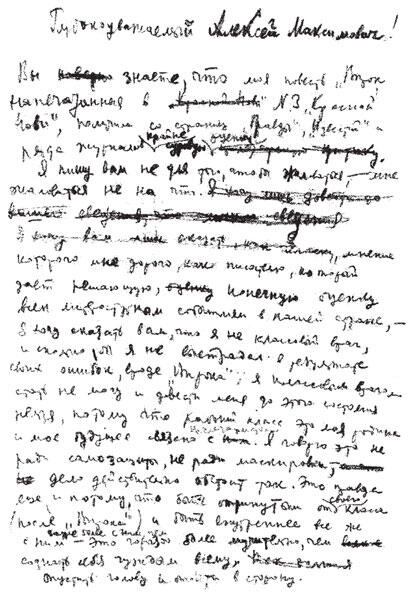 Глубокоуважаемый Алексей Максимович!
Вы знаете, что моя повесть „Впрок",
напечатанная в № 3 „Красной
Нови", получила со страниц „Правды", „Известий" и
ряда журналов крайне оценку.
Я пишу вам не для того, чтобы жаловаться, — мне
жаловаться не на что.
Я хочу вам лишь сказать, как человеку, мнение
которого мне дорого, как писателю, который
дает решающую, конечную оценку
всем литературным событиям в нашей стране, —
я хочу сказать вам, что я не классовый враг,
и сколько бы я не выстрадал в результате
своих ошибок, вроде „Впрока", я классовым врагом
стать не могу и довести меня до этого состояния
нельзя, потому что рабочий класс это моя родина
и мое будущее связано с пролетариатом. Я говорю это не
ради самозащиты, не ради маскировки, —
дело действительно обстоит так. Это правда
еще и потому, что быть отринутым от своего класса
(после „Впрока") и быть внутренне все же
с ним — это гораздо более мучительно, чем
сознать себя чуждым всему,
опустить голову и отойти в сторону.